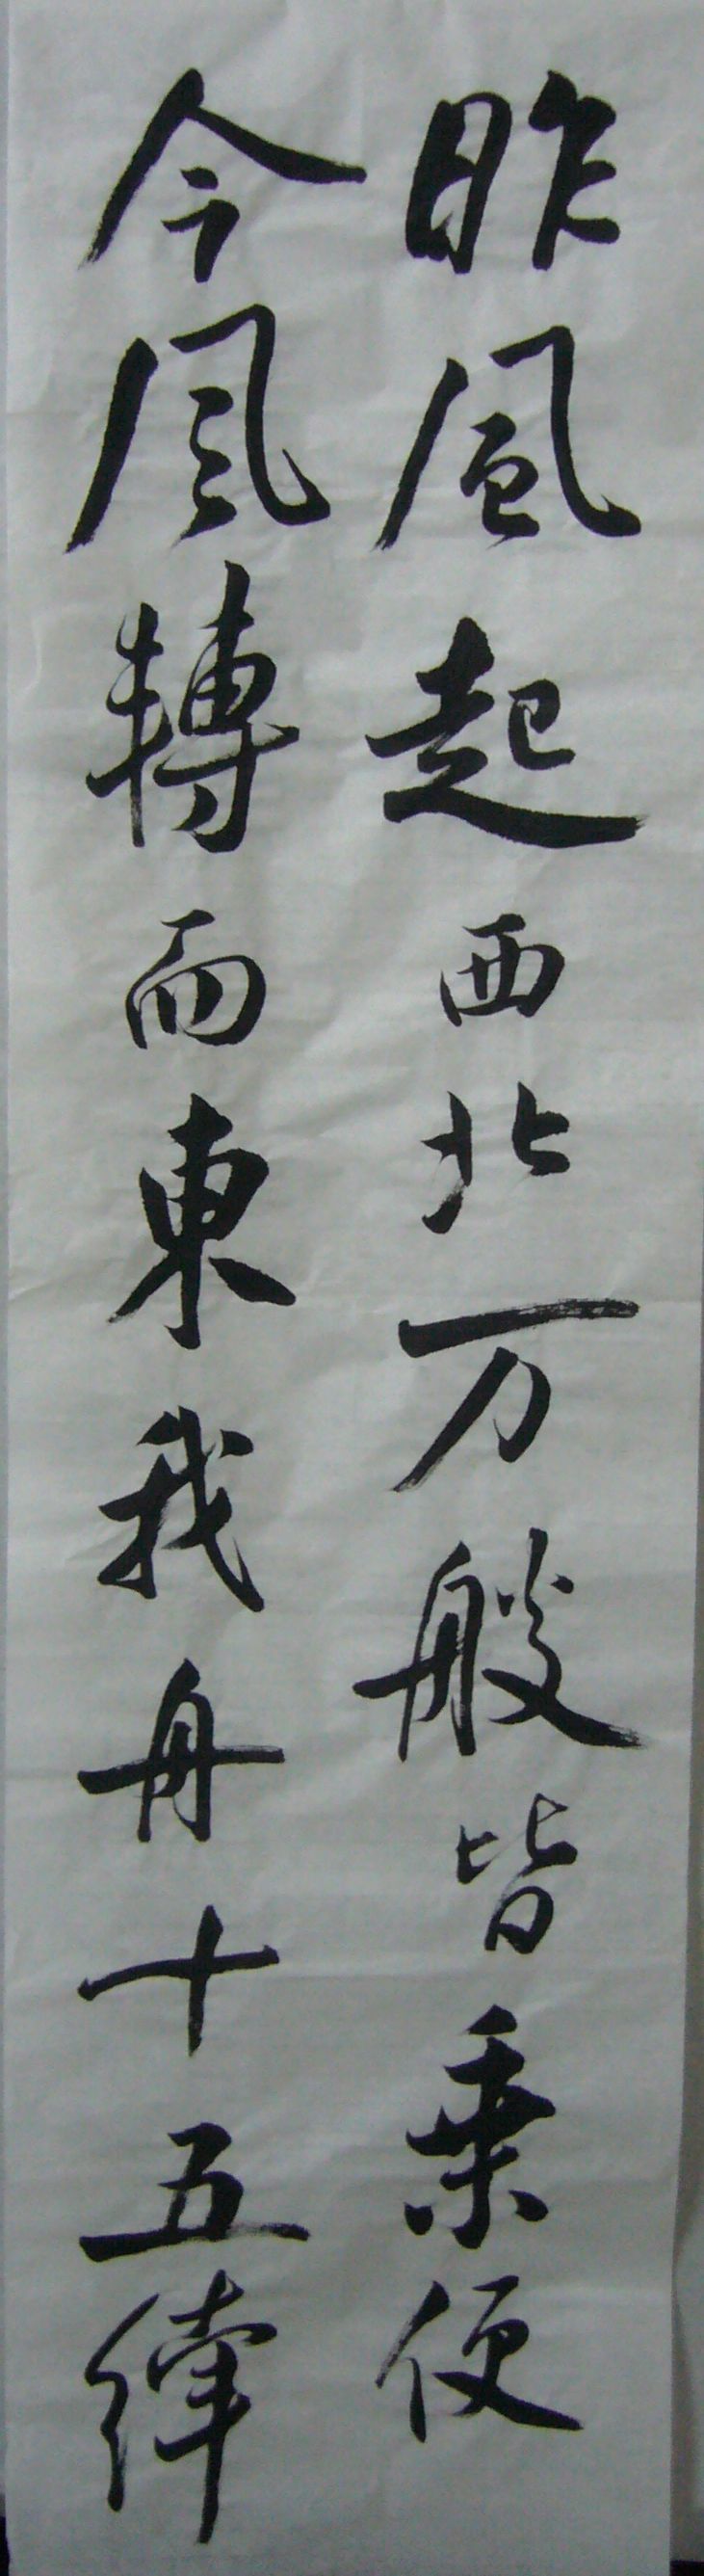 昨風起西北万艘皆乗便
今風轉而東我舟十五縴